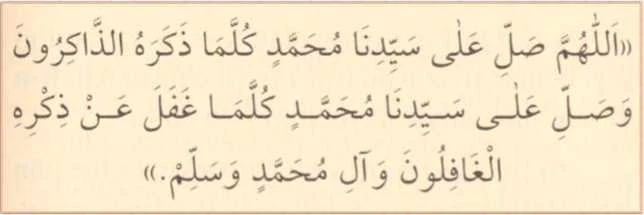 «اَللّٰهُمَّ صَلِّ عَلٰى سَيِّدِنَا مُحَمَّدٍ كُلَّمَا ذَكَرَهُ الذَّاكِرُونَ
وَصَلِّ عَلٰى سَيِّدِنَا مُحَمَّدٍ كُلَّمَا غَفَلَ عَنْ ذِكْرِهِ
الْغَافِلُونَ وَآلِ مُحَمَّدٍ وَسَلِّمْ.»